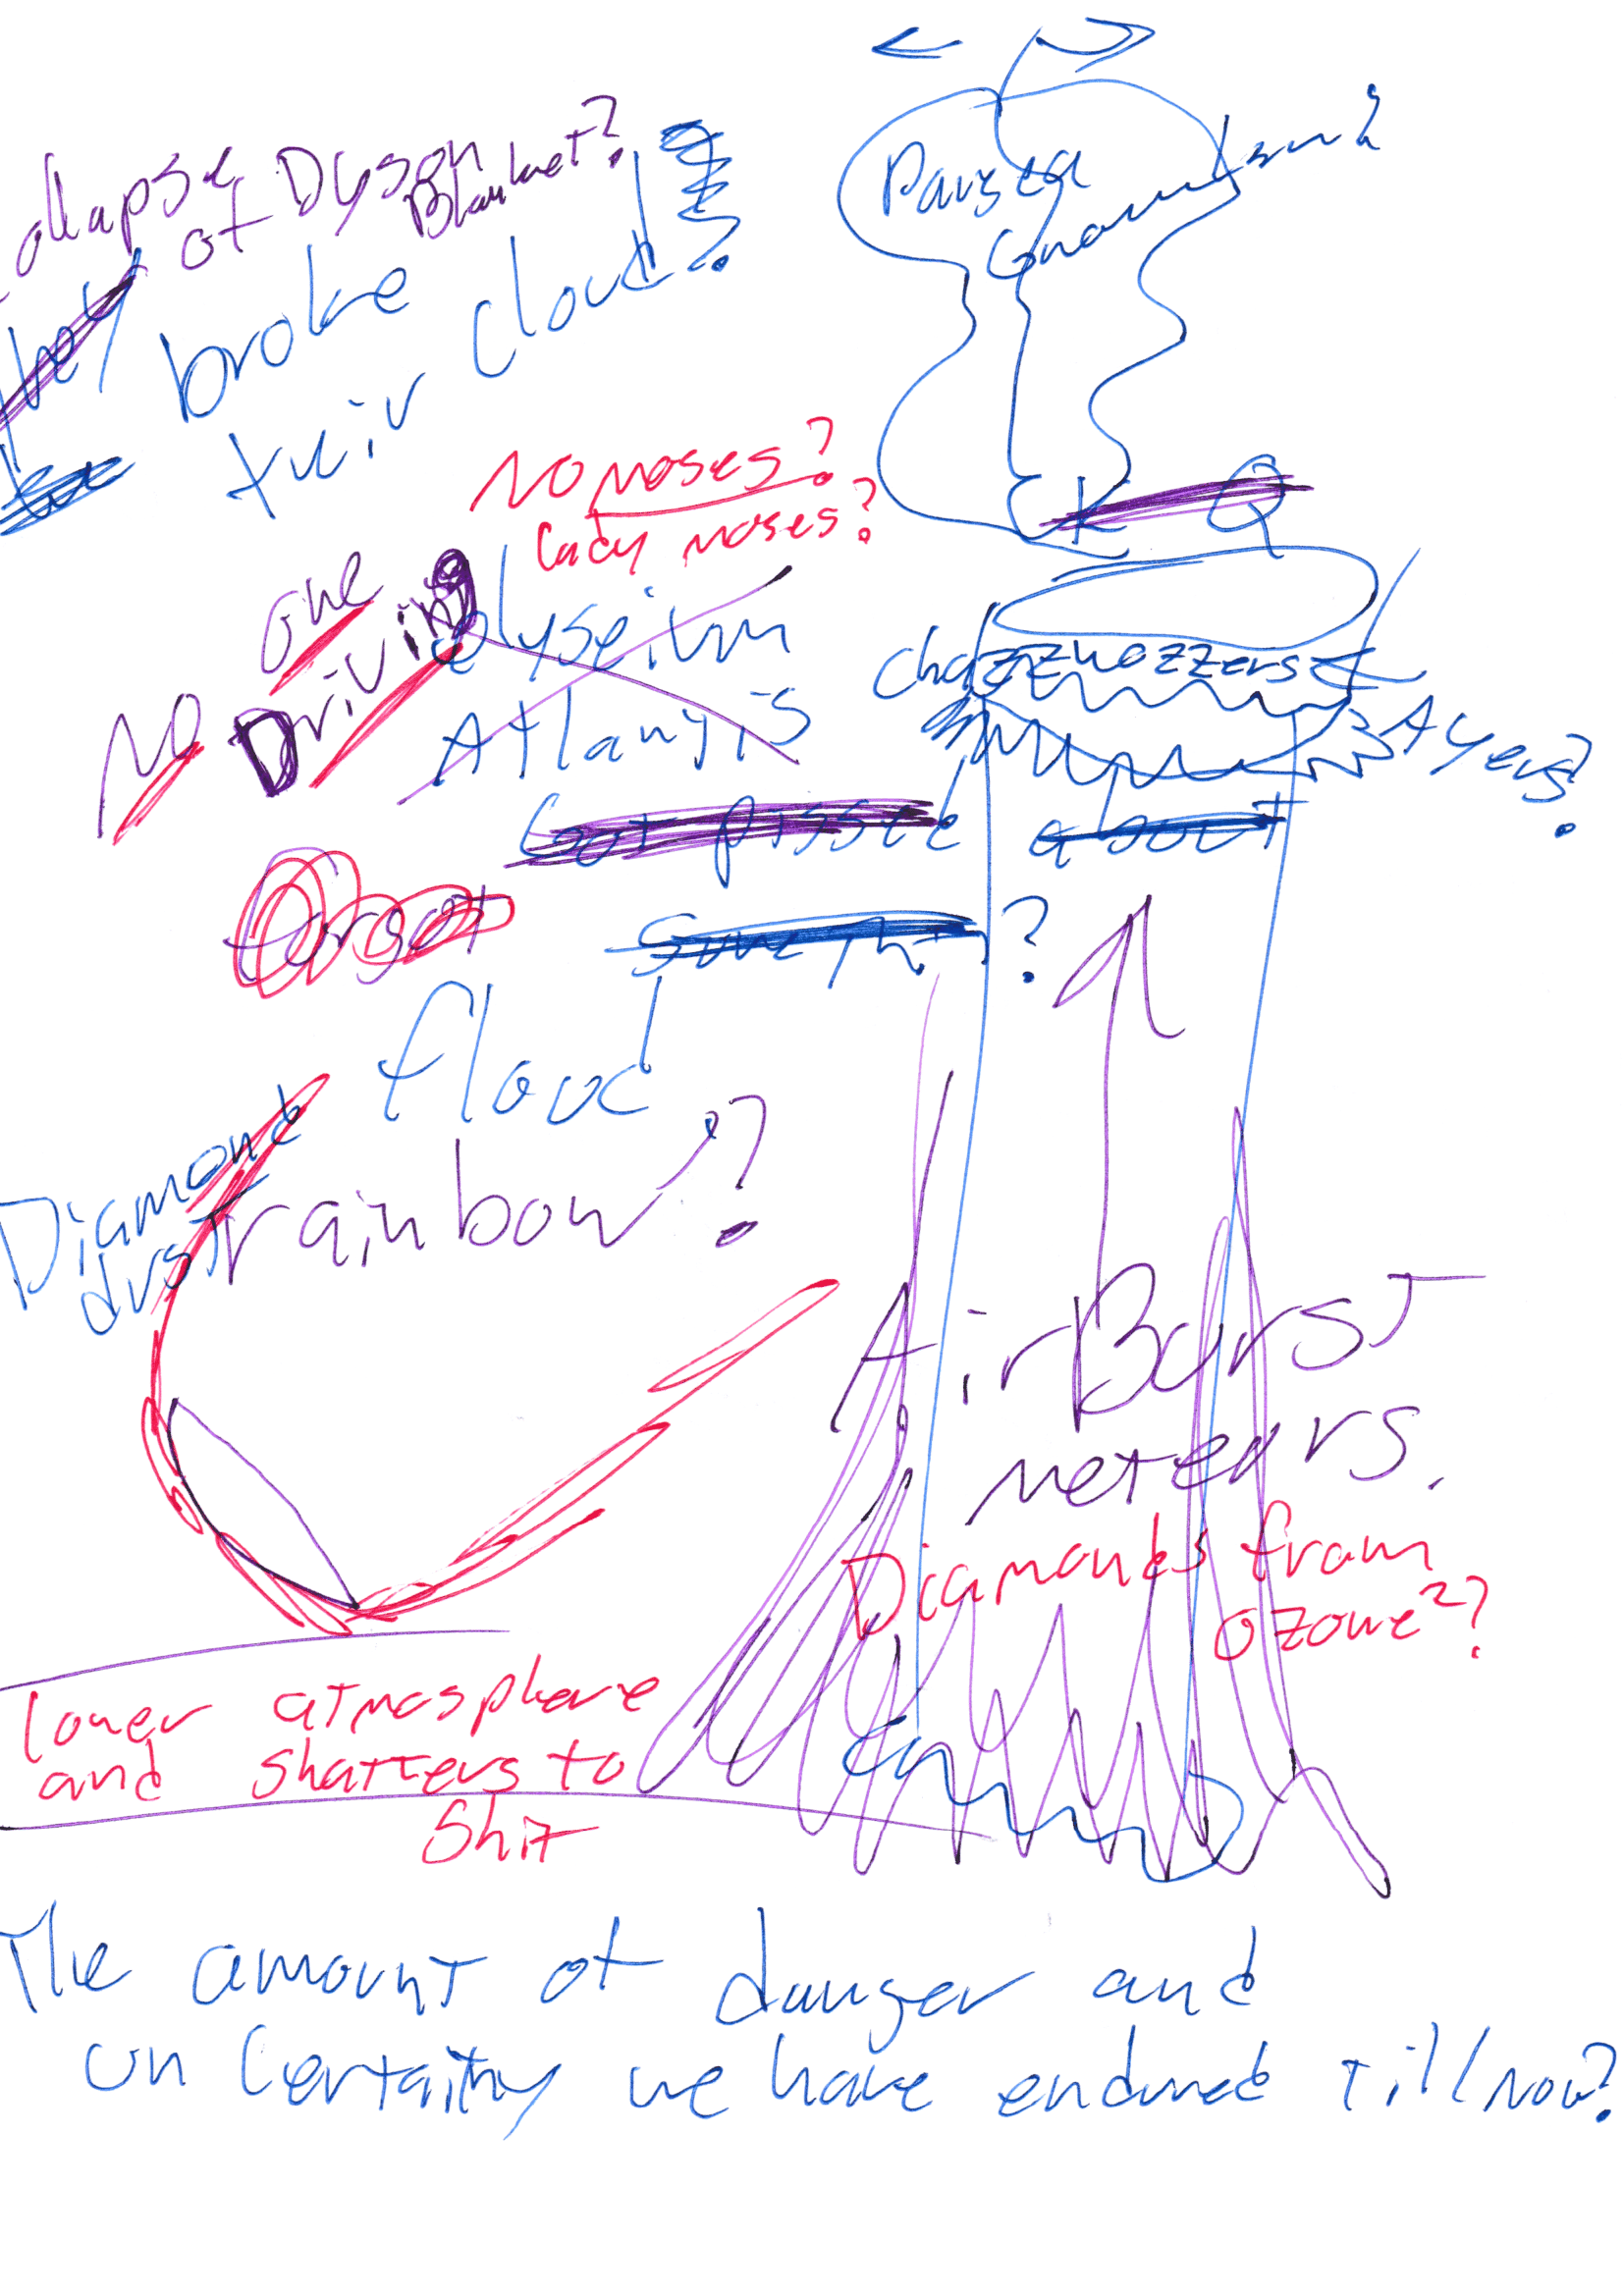 of Dyson
Blanket?
broke
their cloud?
Pangea
No moses?
Lady moses?
K Q
one
No Driving
elyseium
Atlantis
Chazzwozzers
Ayers?
Got pissed about
?
forgot
flood
Diamond
dust
rainbow?
AirBurst
meteors.
Diamonds from
ozone²?
lower atmosphere
and shatters to
Shit
The amount of danger and
un certainty we have endured till now?